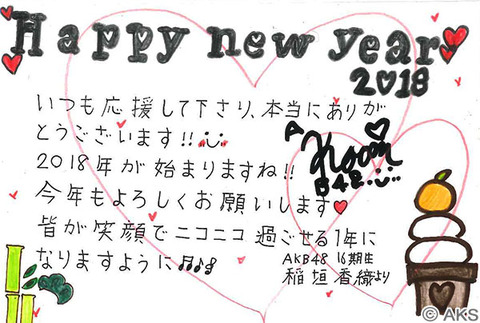 Happy new year
2018
いつも応援して下さり、本当にありが
とうございます!!
2018年が始まりますね!!
今年もよろしくお願いします♥
皆が笑顔でニコニコ過ごせる1年に
なりますように♫♪
AKB48 16期生
稲垣香織より
© AKS